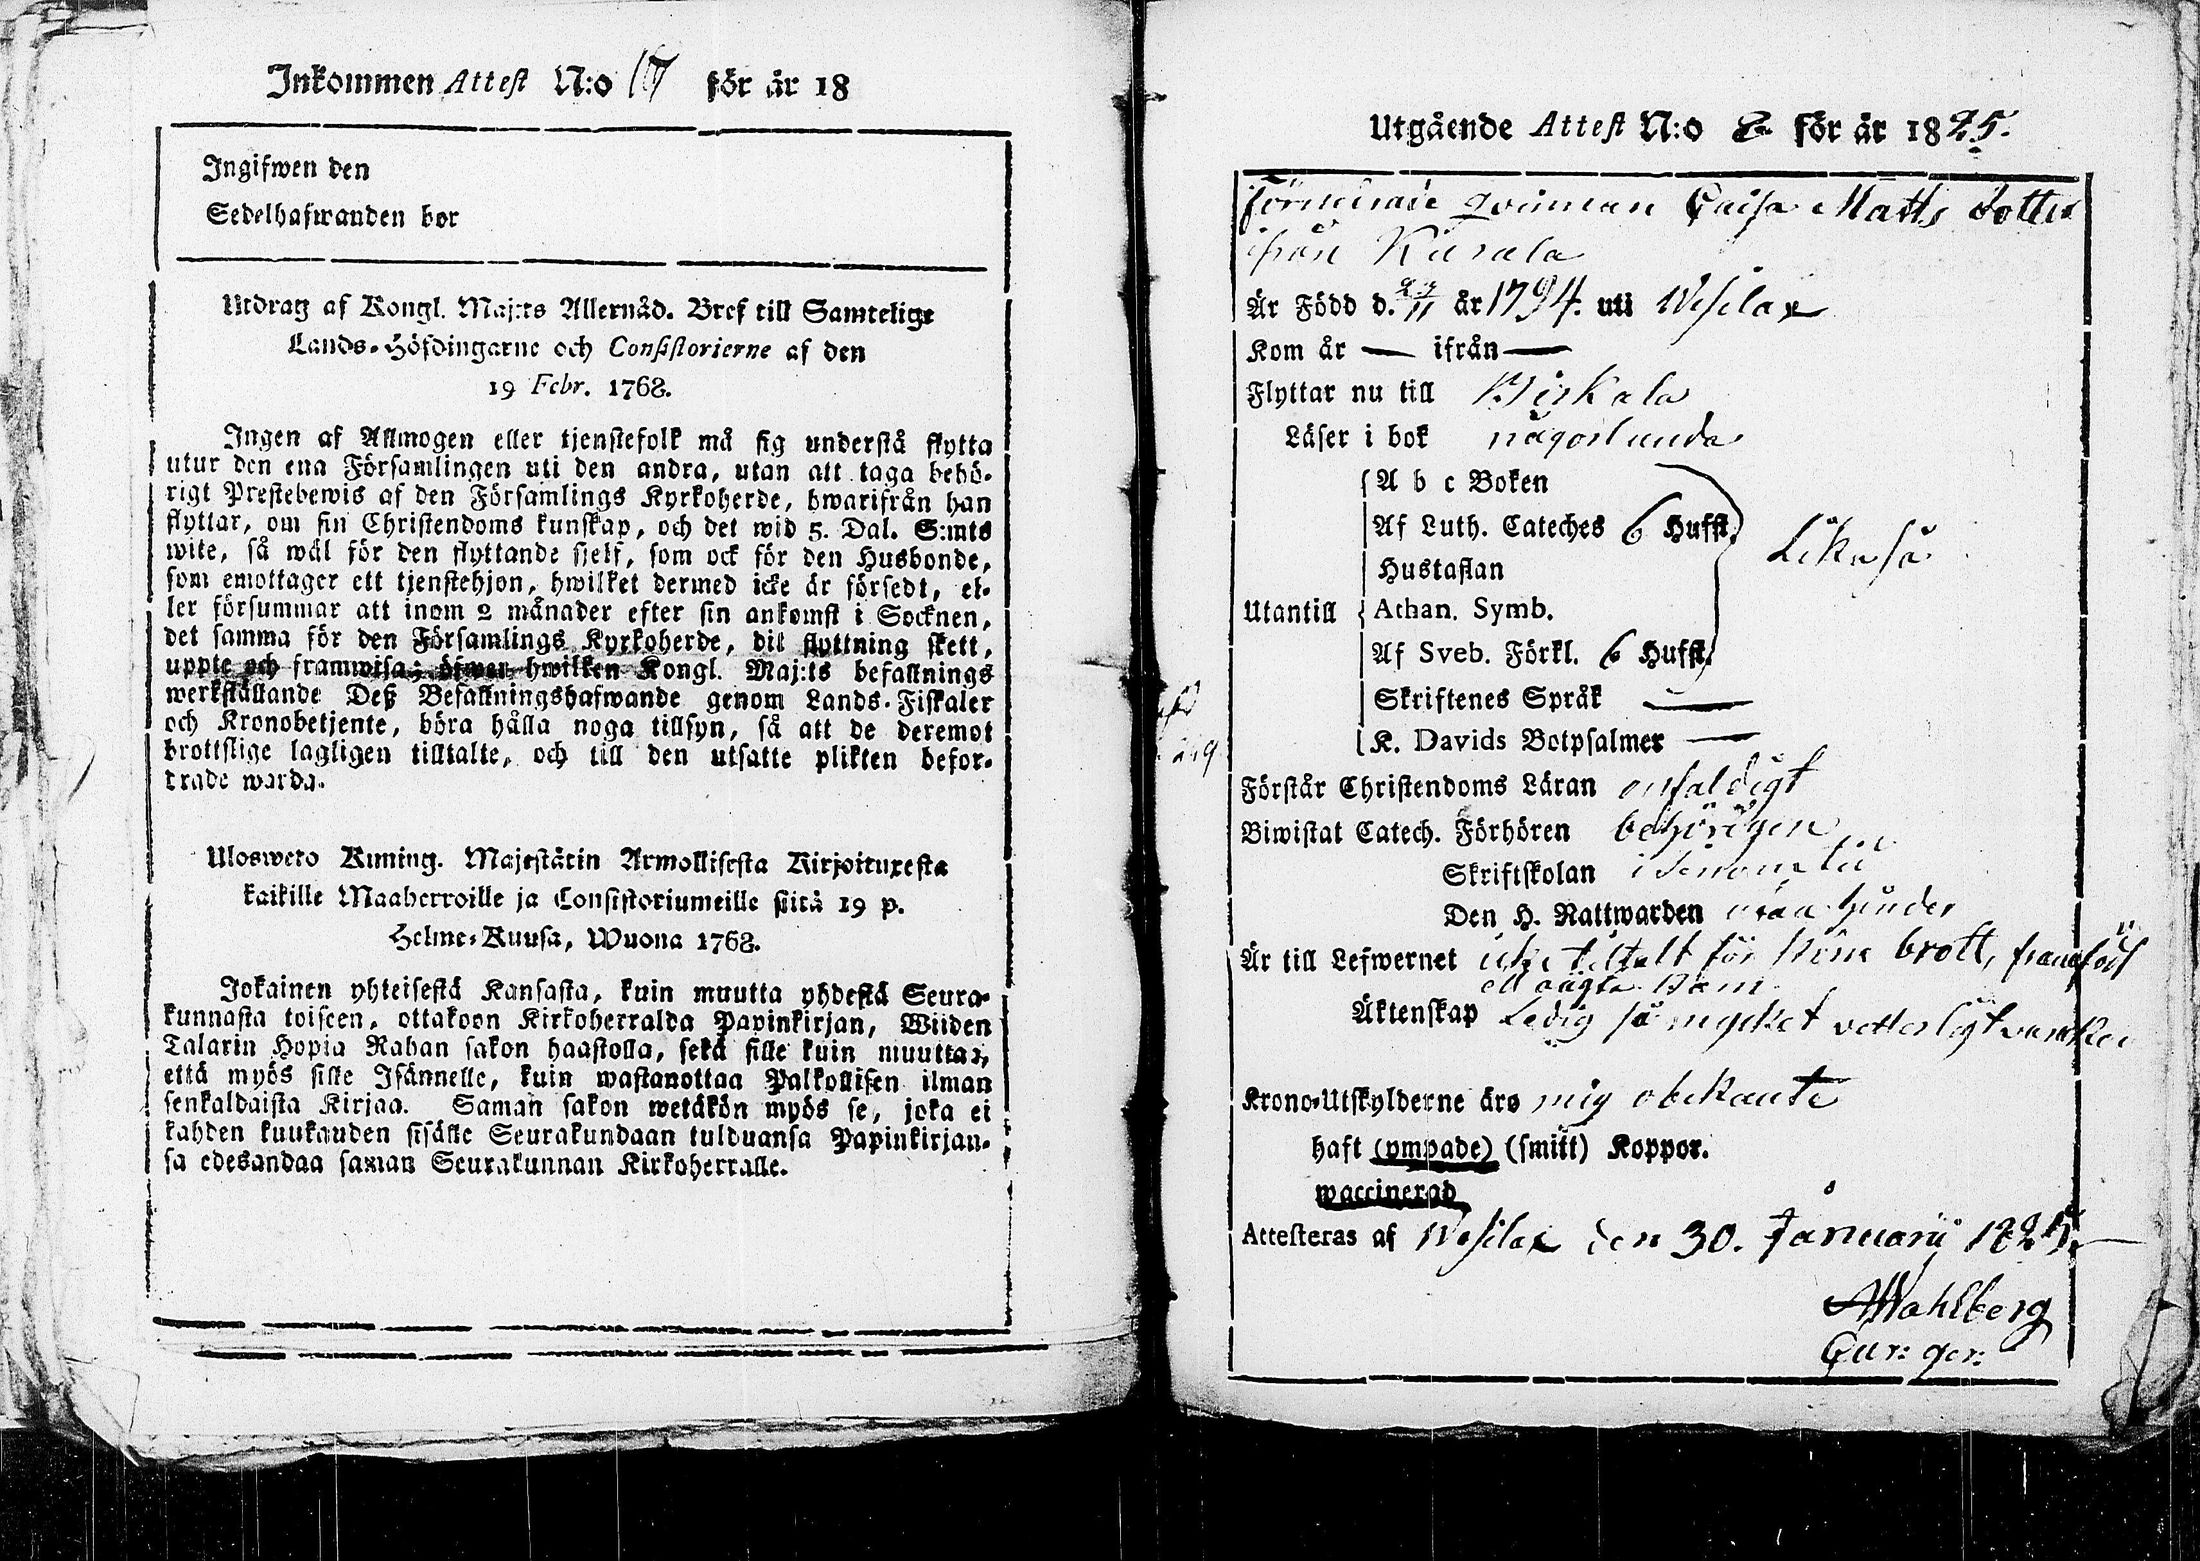 Inkommen Attest N:o 17 för år 18
Ingifwen den
Sedelhafwanden bor
Utdrag af Kongl. Maj:ts Allernåd. Bref till Samtelige
Lands-Höfdingarne och Consistorierne af den
19 Febr. 1768.
Ingen af Allmogen eller tjenstefolk må sig understå flytta
utur den ena Församlingen uti den andra, utan att taga behö-
rigt Prestebewis af den Församlings Kyrkoherde, hwarifrån han
flyttar, om sin Christendoms kunskap, och det wid 5. Dal. S:mts
wite, så wäl för den flyttande sjelf, som ock för den Husbonde,
som emottager ett tjenstehjon, hwilket dermed icke är försedt, el-
ler försummar att inom 2 månader efter sin ankomst i Socknen,
det samma för den Församlings Kyrkoherde, dit flyttning skett,
uppte och framwisa; öfwer hwilken Kongl. Maj:ts befallnings
werkställande Deß Befallningshafwande genom Lands-Fiskaler
och Kronobetjente, böra hålla noga tillsyn, så att de deremot
brottslige lagligen tilltalte, och till den utsatte plikten befor-
drade warda.
Ulosweto Kuning. Majestätin Armollisesta Kirjoituxesta
kaikille Maaherroille ja Consistoriumeille siitä 19 p.
Helme-Kuusa, Wuona 1768.
Jokainen yhteisestä Kansasta, kuin muutta yhdestä Seura-
kunnasta toiseen, ottakoon Kirkoherralda Papinkirjan, Wiiden
Talarin Hopia Rahan sakon haastolla, sekä sille kuin muuttaa,
että myös sille Isännelle, kuin wastanottaa Palkollisen ilman
senkaldaista Kirjaa. Saman sakon wetäkön myös se, joka ei
kahden kuukauden sisälle Seurakundaan tulduansa Papinkirjan-
sa edesandaa saman Seurakunnan Kirkoherralle.
Utgående Attest N:o 2 för år 1825.
förmenade qvinnan Caisa Matts dotter
ifrån Kurala
Är Född d. 27/11 år 1794. uti Wesilax
Kom år — ifrån —
Flyttar nu till Birkala
Läser i bok någorlunda
A b c Boken
Af Luth. Cateches 6 Hufst.
Hustaflan
Likaså
Utantill Athan. Symb.
Af Sveb. Förkl. 6 Hufst.
Skriftenes Språk —
K. Davids Botpsalmer —
Förstår Christendoms Läran enfaldigt
Biwistat Catech. Förhören behörigen
Skriftskolan i senare tid
Den H. Nattwarden utan hinder
Är till Lefwernet icke tiltalt för större brott, framfödt
ett oägta Barn
Äktenskap Ledig så mycket vetterligt
Krono-Utskylderne äro mig obekante
haft (ympade) (smitt) Koppor.
waccinerad
Attesteras af Wesilax den 30. Januarii 1825.
A Wahlberg
Cur: ger: